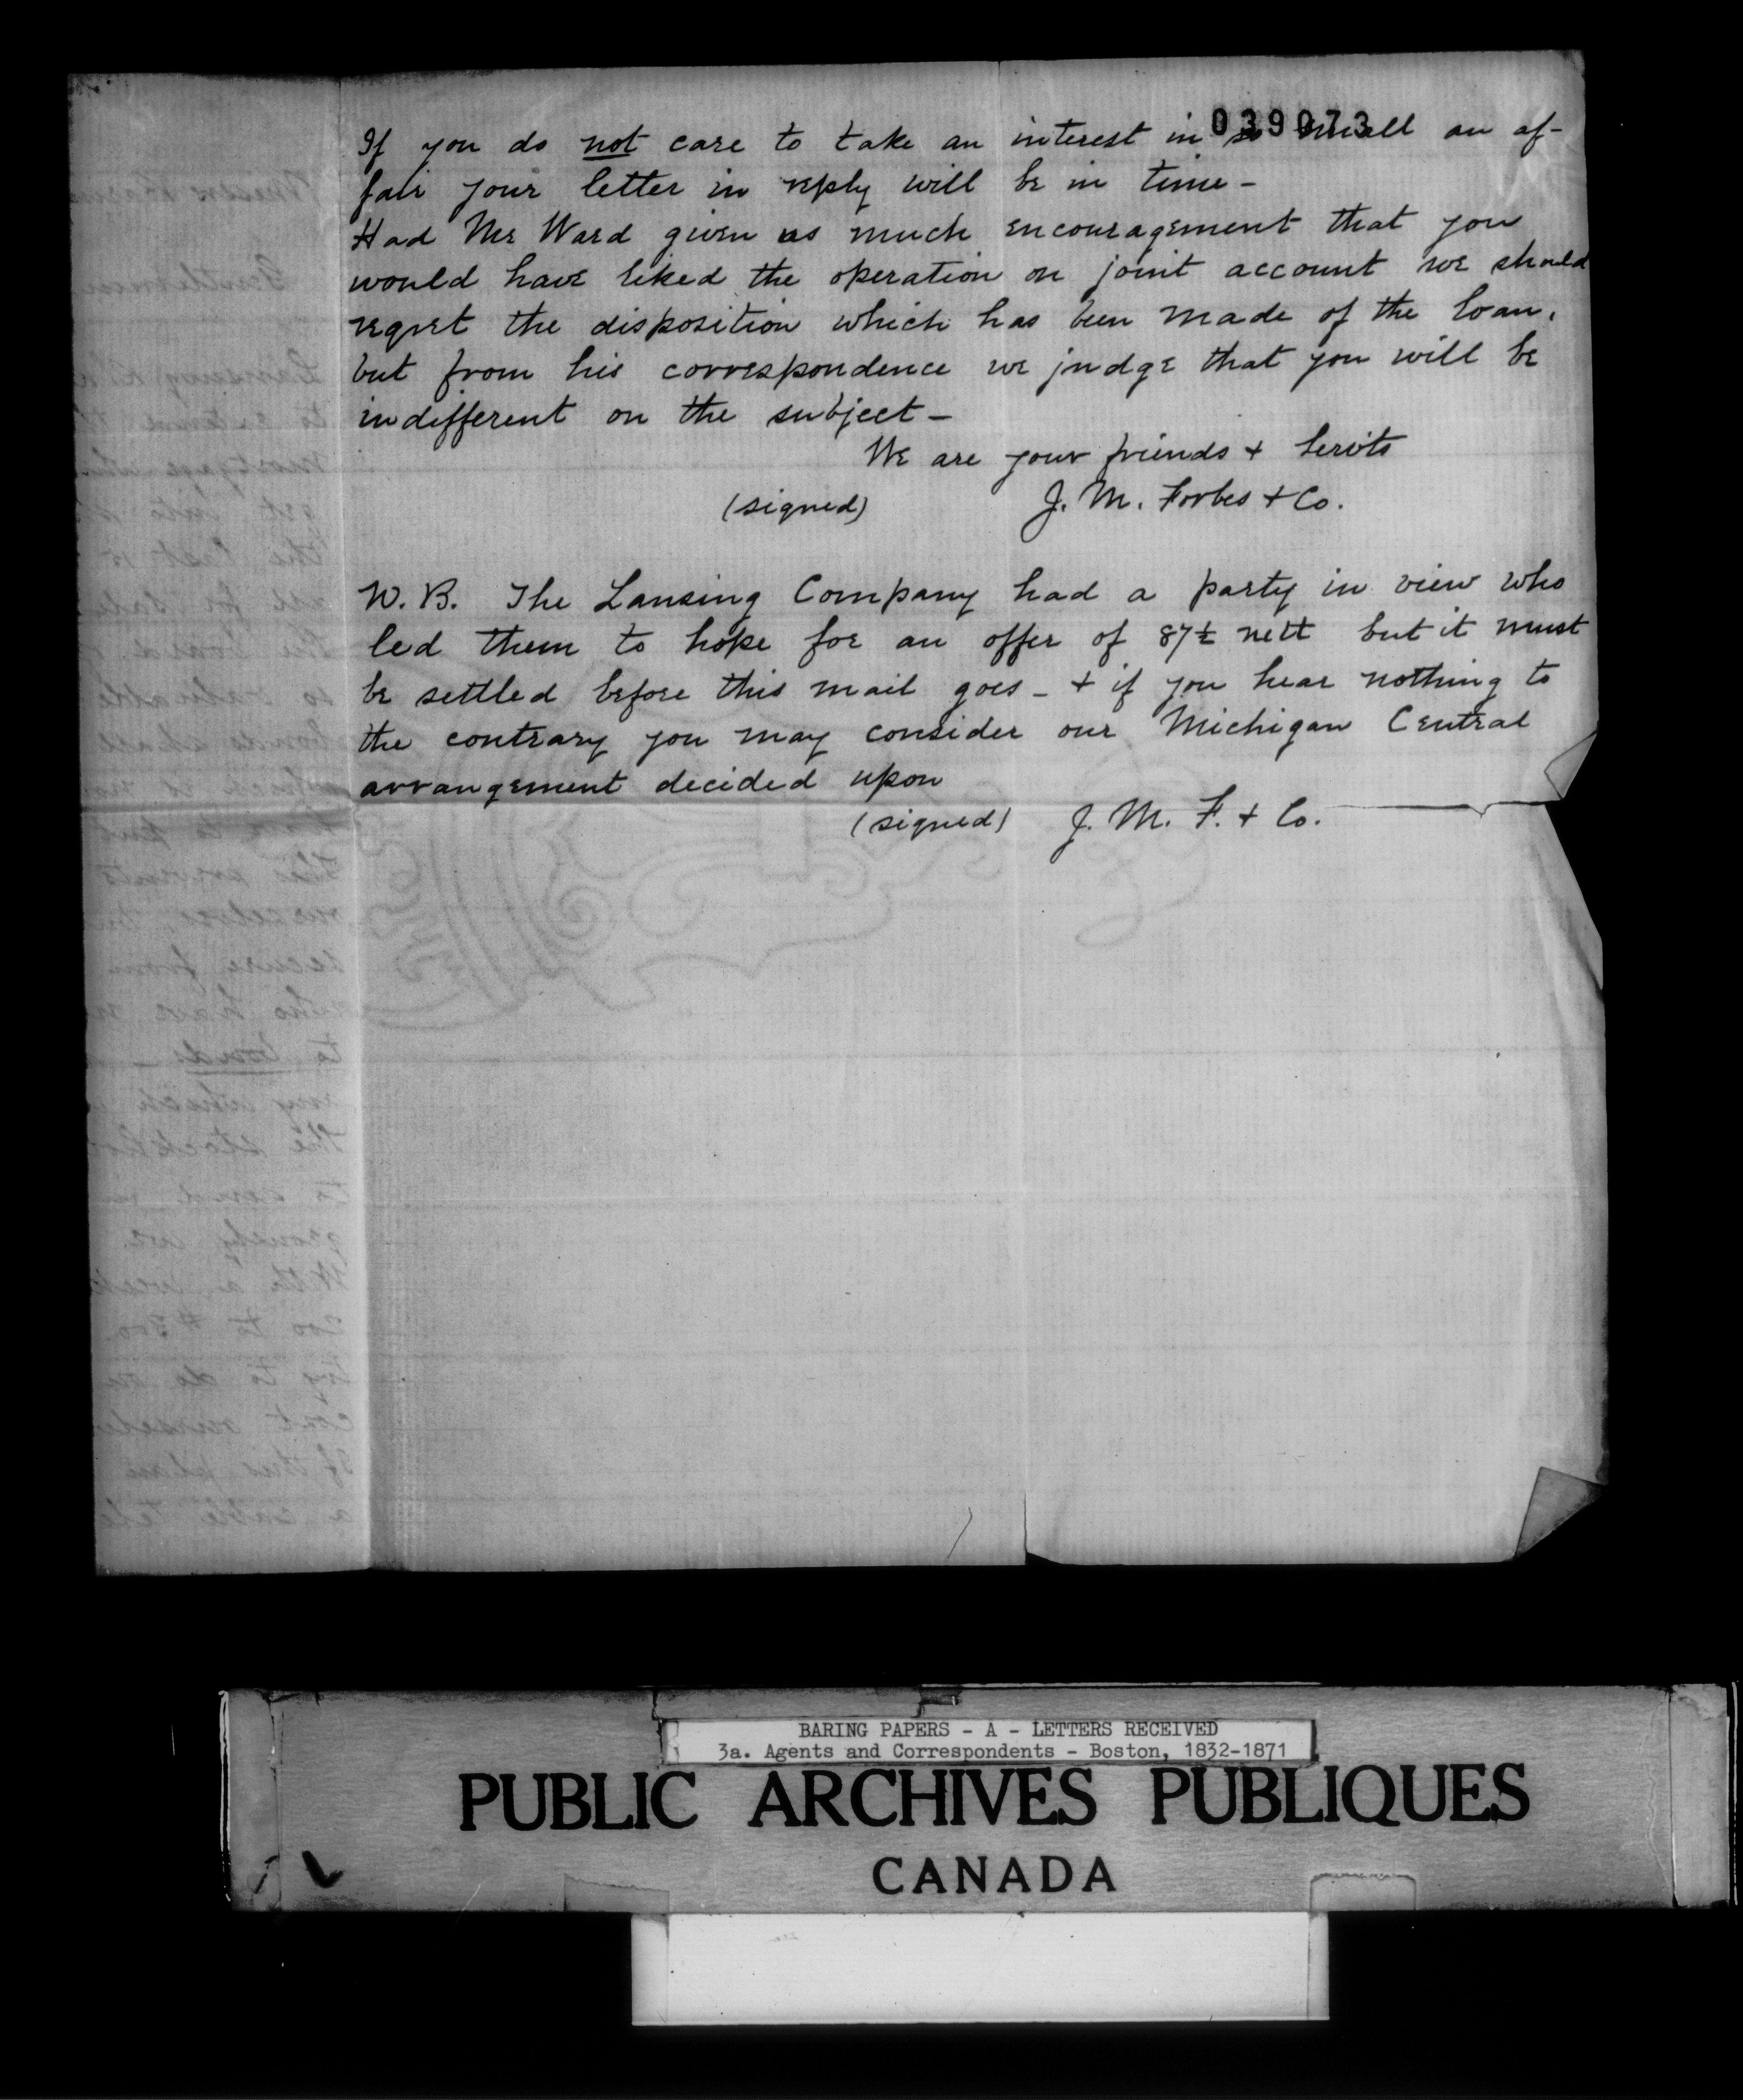 039073
If you do not care to take an interest in so small an af-
fair your letter in reply will be in time -
Had Mr Ward given us much encouragement that you
would have liked the operation on joint account we should
regret the disposition which has been made of the loan,
but from his correspondence we judge that you will be
indifferent on the subject -
We are your friends + Servts
(signed) J. M. Forbes + Co.
N.B. The Lansing Company had a party in view who
led them to hope for an offer of 87½ nett but it must
be settled before this mail goes - + if you hear nothing to
the contrary you may consider our Michigan Central
arrangement decided upon
(signed) J. M. F. + Co.
BARING PAPERS - A - LETTERS RECEIVED
3a. Agents and Correspondents - Boston, 1832-1871
PUBLIC ARCHIVES PUBLIQUES
CANADA